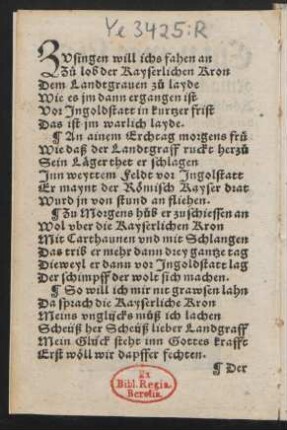 Ye 3425:R
ZVsingen will ichs fahen an
Zů lob der Kayserlichen Kron
Dem Landtgrauen zů layde
Wie es jm dann ergangen ist
Vor Jngolstatt in kurtzer frist
Das ist jm warlich layde.
¶ An ainem Erchtag morgens frů
Wie daß der Landtgraff ruckt herzů
Sein Läger thet er schlagen
Jnn weyttem Feldt vor Jngolstatt
Er maynt der Römisch Kayser drat
Wurd jn von stund an fliehen.
¶ Zu Morgens hůb er zu schiessen an
Wol vber die Kayserlichen Kron
Mit Carthaunen vnd mit Schlangen
Das trib er mehr dann drey gantze tag
Dieweyl er dann vor Jngolstatt lag
Der schimpff der wolt sich machen.
¶ So will ich mir nit grawsen lahn
Da sprach die Kayserliche Kron
Meins vnglücks můß ich lachen
Scheüß her Scheüß lieber Landgraff
Mein Glück steht inn Gottes krafft
Erst wöll wir dapffer fechten.
¶ Der
Ex
Bibl. Regia.
Berolin.